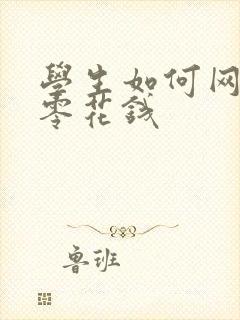 學生如何网
零花錢
鲁班